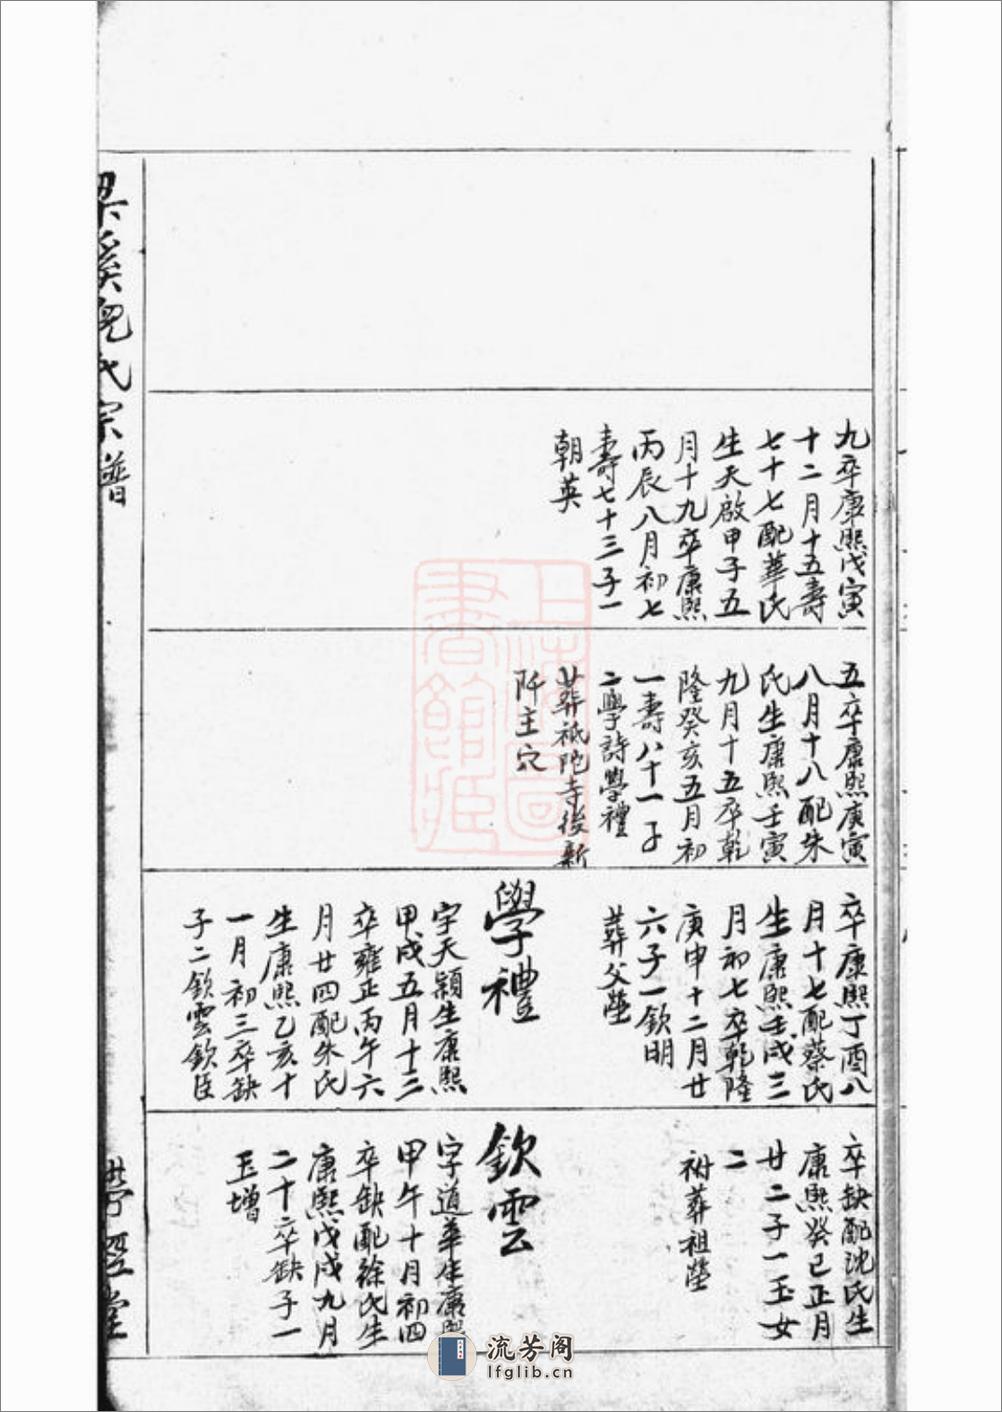 梁溪倪氏宗譜
九卒康熙戊寅
十二月十五壽
七十七配華氏
生天啟甲子五
月十九卒康熙
丙辰八月初七
壽七十三子一
朝英
五卒康熙庚寅
八月十八配朱
氏生康熙壬寅
九月十五卒乾
隆癸亥五月初
一壽八十一子
二學詩學禮
葬祇陀寺後新
阡主穴
卒康熙丁酉八
月十七配蔡氏
生康熙壬戌三
月初七卒乾隆
庚申十二月廿
六子一欽明
葬父塋
學禮
字天穎生康熙
甲戌五月十三
卒雍正丙午六
月廿四配朱氏
生康熙乙亥十
一月初三卒缺
子二欽雲欽臣
卒缺配沈氏生
康熙癸巳正月
廿二子一玉女
二
祔葬祖塋
欽雲
字道華生康熙
甲午十月初四
卒缺配徐氏生
康熙戊戌九月
二十卒缺子一
玉增
經堂
上海圖書館藏
流芳阁
lfglib.cn